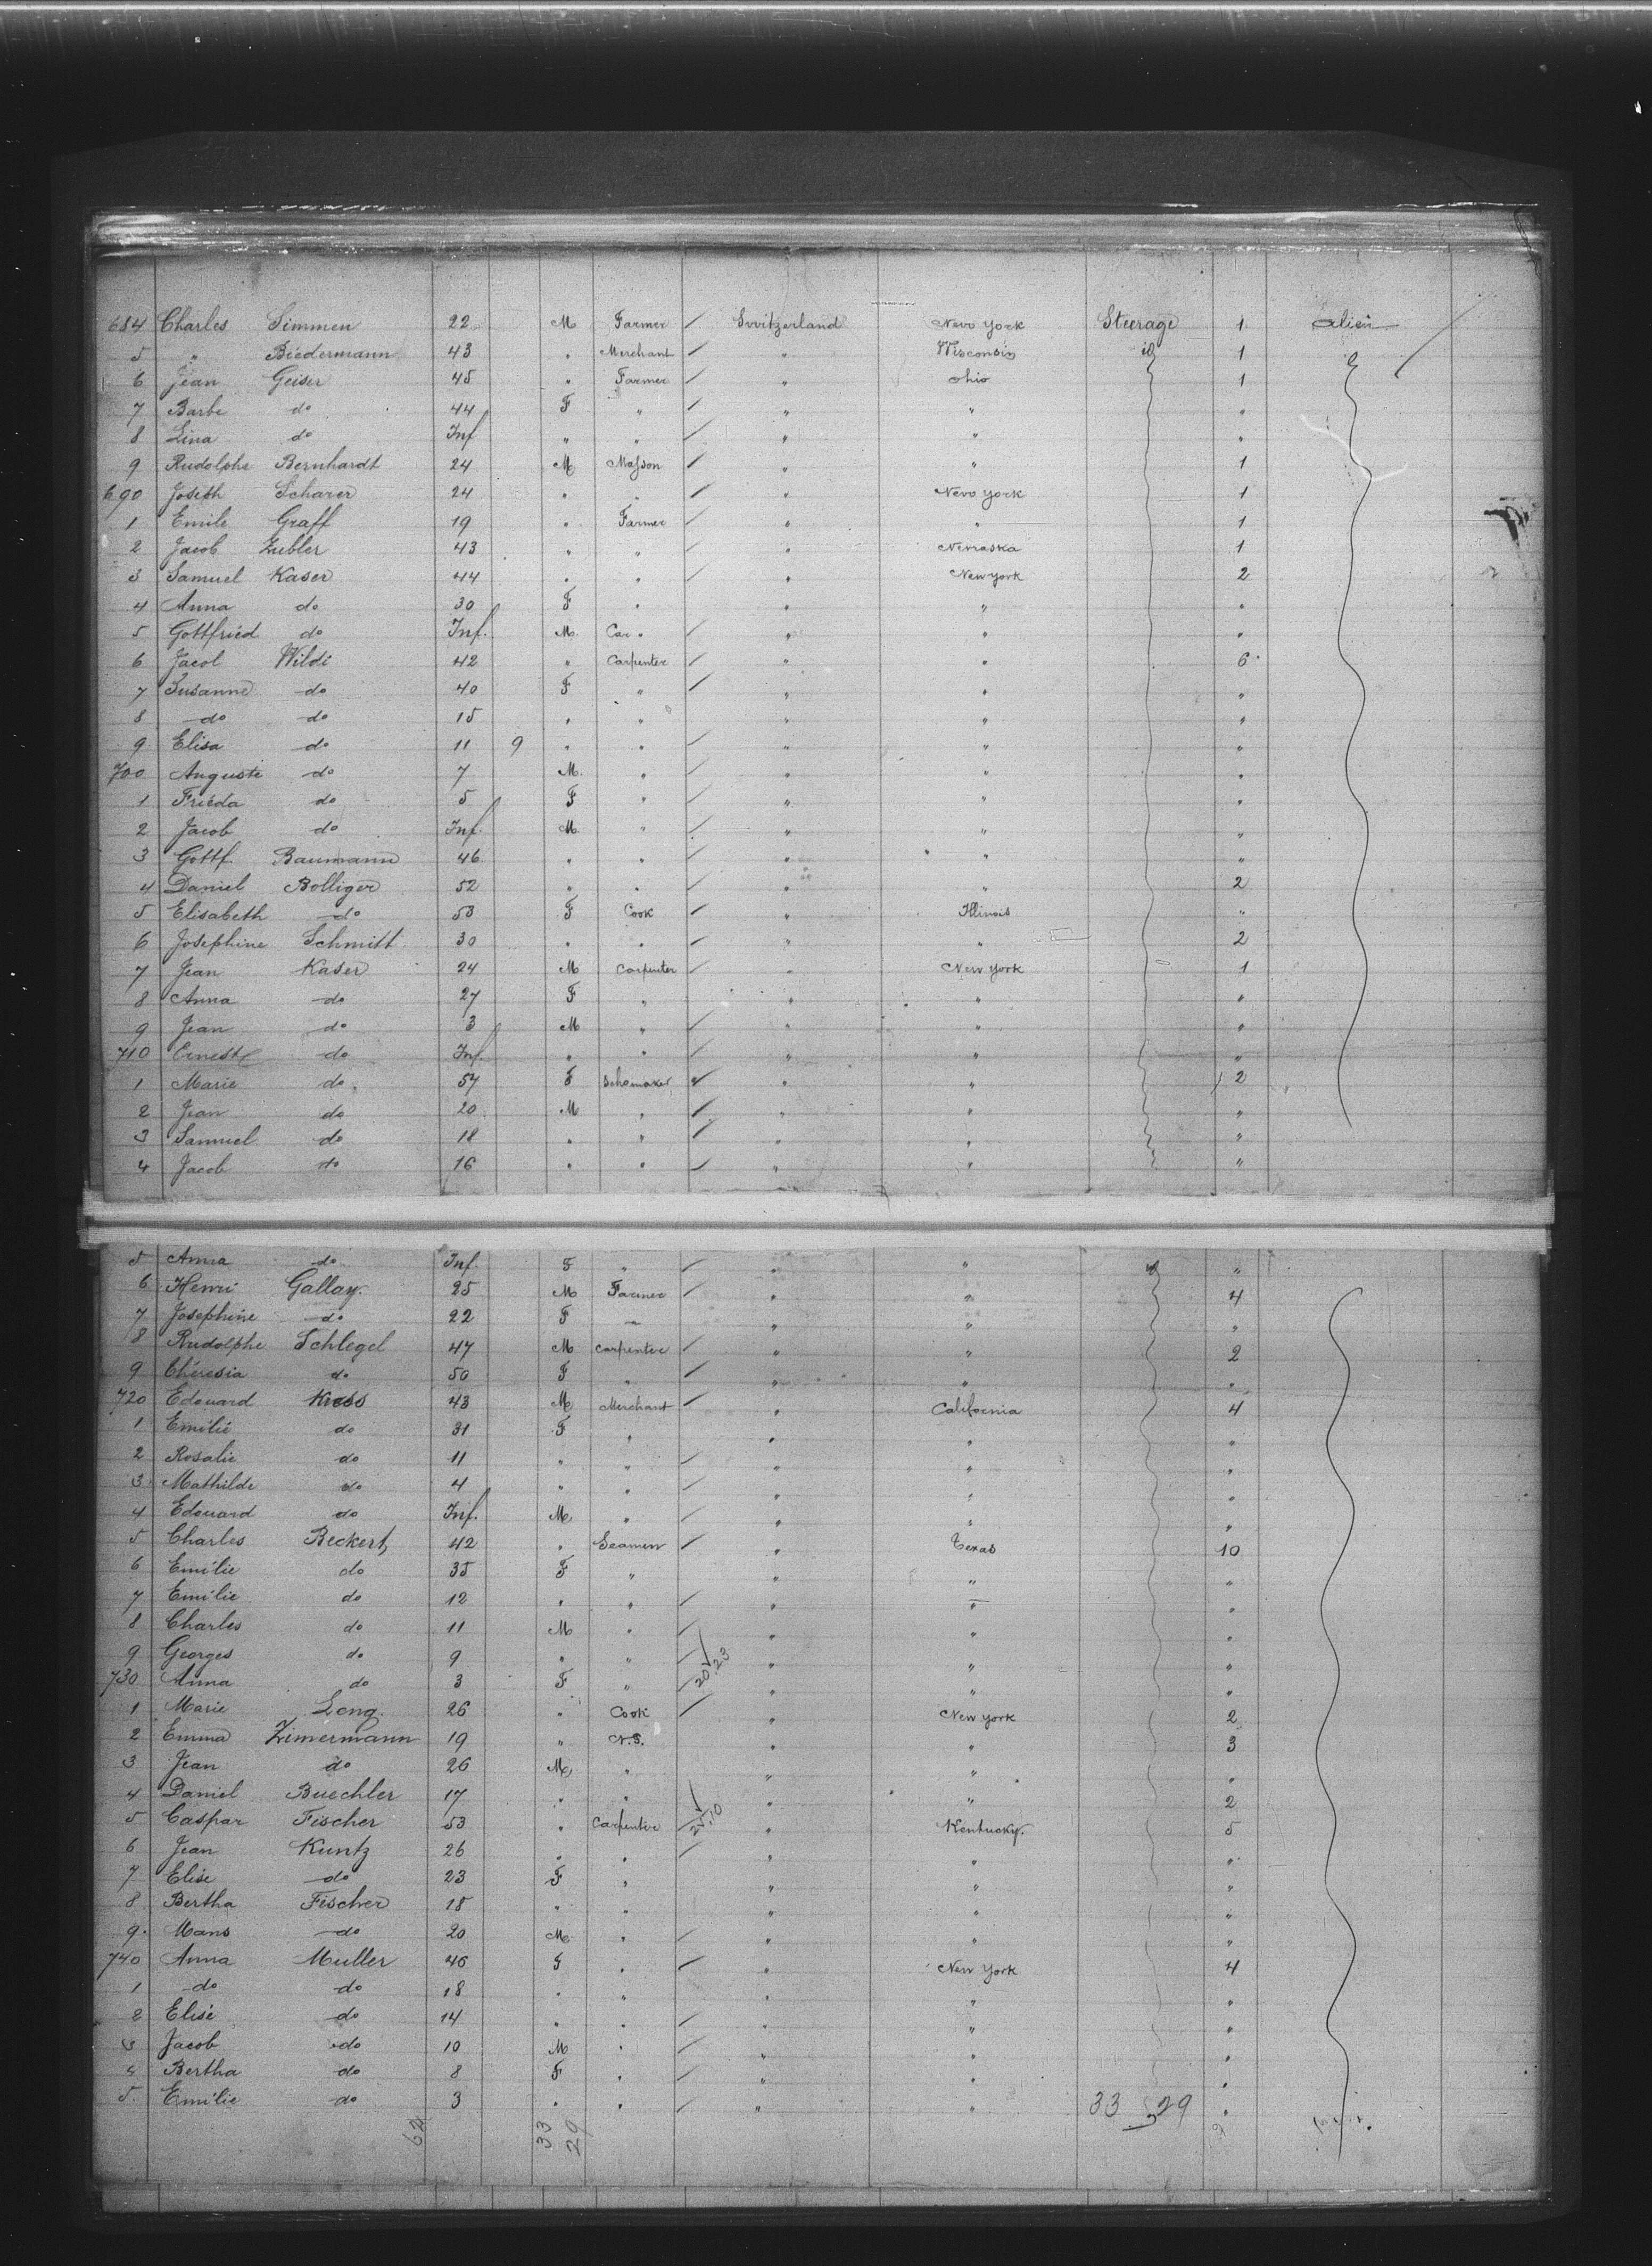 684 Charles Simmen 22 M Farmer / Switzerland New York Steerage 1 alien
5 " Biedermann 43 " Merchant / " Wisconsin id 1
6 Jean Geiser 45 " Farmer / " Ohio 1
7 Barbe do 44 F " / " " "
8 Lina do Inf " " / " " "
9 Rudolphe Bernhardt 24 M Masson / " " 1
690 Joseth Scharer 24 " " / " New York 1
1 Emile Graff 19 " Farmer / " " 1
2 Jacob Zubler 43 " " / " Nemaska 1
3 Samuel Kaser 44 " " / " New york 2
4 Anna do 30 F " " " "
5 Gottfried do Inf. M. Car " / " " "
6 Jacol Wildi 42 " Carpenter / " " 6
7 Susanne do 40 F " / " " "
8 do do 15 " " " " "
9 Elisa do 11 9 " " / " " "
700 Auguste do 7 M. " / " " "
1 Frieda do 5 F " / " " "
2 Jacob do Inf. M. " / " " "
3 Gottf. Baumann 46 " " / " " "
4 Daniel Bolliger 52 " " / " " 2
5 Elisabeth do 53 F Cook / " Illinois "
6 Josephine Schmitt 30 " " / " " 2
7 Jean Kaser 24 M Carpenter / " New York 1
8 Anna do 27 F " / " " "
9 Jean do 3 M " / " " "
710 Ernest do Inf. " " / " " "
1 Marie do 57 F Schomaker / " " 2
2 Jean do 20 M " / " " "
3 Samuel do 18 " " / " " "
4 Jacob do 16 " " / " " "
5 Anna do Inf. F " / " " id "
6 Henri Gallay. 25 M Farmer / " " 4
7 Josephine do 22 F " " " "
8 Rudolphe Schlegel 47 M Carpenter / " " 2
9 Théresia do 50 F " / " " "
720 Edouard Kress 43 M Merchant / " California 4
1 Emilie do 31 F " " " "
2 Rosalie do 11 " " / " " "
3 Mathilde do 4 " " / " " "
4 Edouard do Inf. M " / " " "
5 Charles Beckert 42 " Seamen / " Texas 10
6 Emilie do 35 F " " " "
7 Emilie do 12 " " / " " "
8 Charles do 11 M " / " " "
9 Georges do 9 " " / " " "
730 Anna do 3 F " / 20 23 " " "
1 Marie Leng. 26 " Cook / " New York 2
2 Emma Zimermann 19 " N.S. " " 3
3 Jean do 26 M " " " "
4 Daniel Buechler 17 " " " " 2
5 Caspar Fischer 53 " Carpenter / " Kentucky. 5
6 Jean Kuntz 26 " " / " " "
7 Elise do 23 F " " " "
8 Bertha Fischer 18 " " " " "
9 Mans do 20 M " / " " "
740 Anna Muller 46 F " / " New York 4
1 do do 18 " " " " "
2 Elise do 14 " " / " " "
3 Jacob do 10 M " / " " "
4 Bertha do 8 F " / " " "
5 Emilie do 3 " " / " " "
33 29
62 33 29